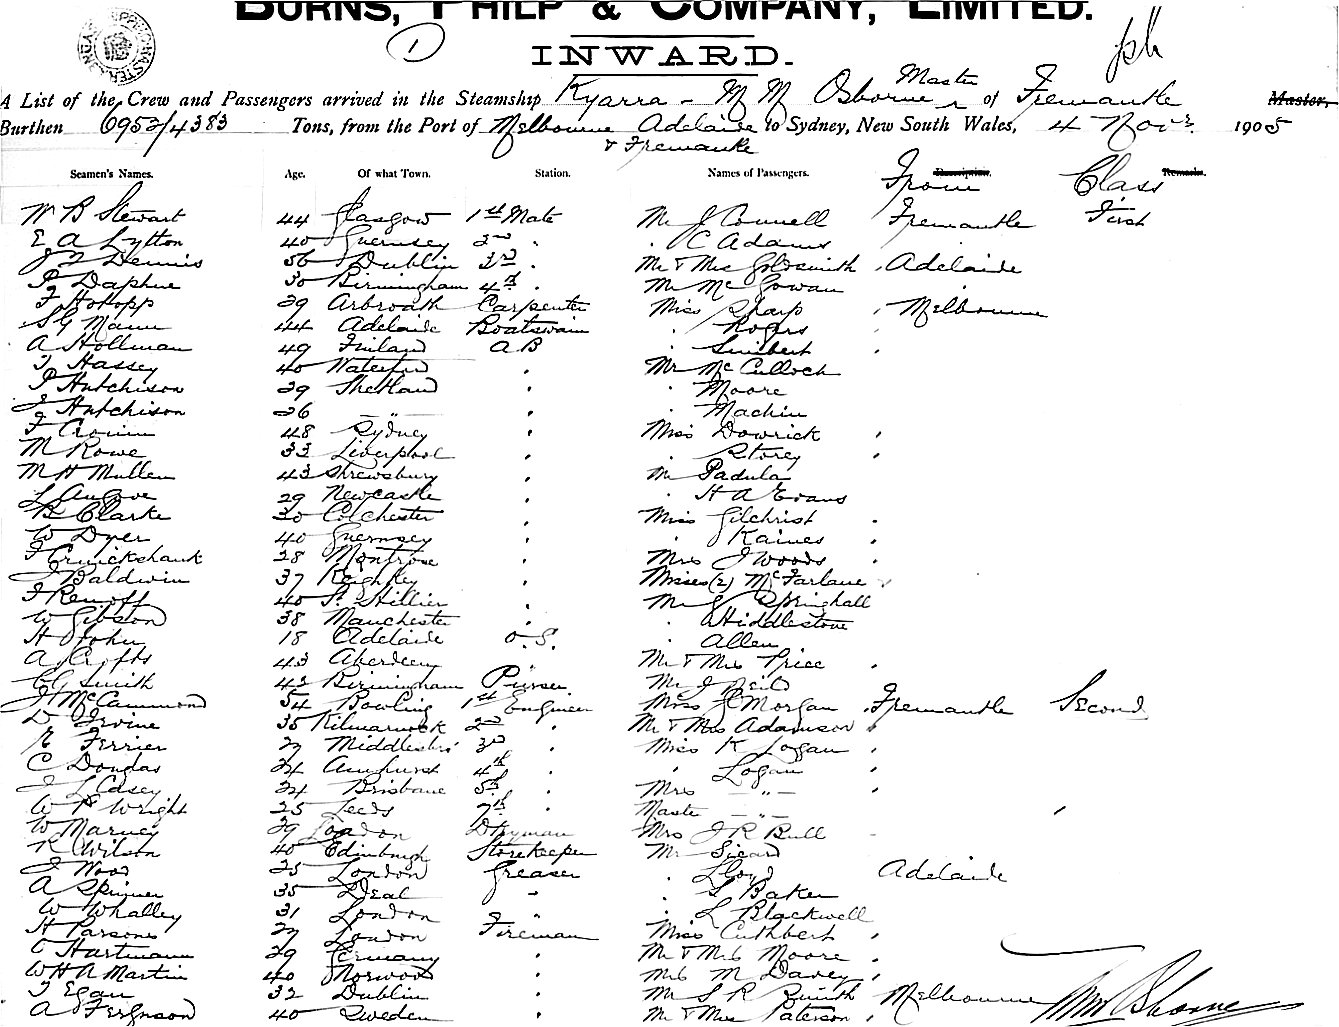 BURNS, PHILP & COMPANY, LIMITED.
INWARD.
A List of the Crew and Passengers arrived in the Steamship Kyarra - M M Osborne Master of Fremantle Master,
Burthen 6953/4383 Tons, from the Port of Melbourne Adelaide & Fremantle to Sydney, New South Wales, 4 Novr. 1905
Seamen's Names. Age. Of what Town. Station. Names of Passengers. From Class
W B Stewart 44 Glasgow 1st Mate Mr J Connell Fremantle First
E A Lytton 40 Guernsey 2nd " " C Adams
J F Dennis 56 Dublin 3rd " Mr & Mrs Goldsmith " Adelaide
P Daphne 30 Birmingham 4th " Mr McGowan
F Hokopp 29 Arbroath Carpenter Miss Sharp " Melbourne
S G Mann 44 Adelaide Boatswain " Rogers "
A Hollman 49 Finland A B " "
T Hassey 40 Waterford " Mr McCulloch
P Hutchison 29 Shetland " " Moore
J Hutchison 26 —"— " " Machin
F Cronin 48 Sydney " Miss Dowrick "
M Rowe 33 Liverpool " " Storey "
M H Mullen 43 Shrewsbury " Mr Padula
L Angove 29 Newcastle " " H A Evans
B Clarke 30 Colchester " Miss Gilchrist "
W Dyer 40 Guernsey " " Kaines "
F Cruickshank 28 Montrose " Mrs J Woods "
J Baldwin 37 Keighley " Misses (2) McFarlane "
J Renoff 40 St. Hillier " Mr J Springhall
W Gibson 38 Manchester " " A Hiddlestone
H John 18 Adelaide O.S. " Allen
A Crofts 43 Aberdeen " Mr & Mrs Price "
C G Smith 43 Birmingham Purser Mr J Neild
J McCammond 54 Bowling 1st Engineer Miss J Morgan " Fremantle Second
D Irvine 35 Kilmarnock 2nd " Mr & Mrs Adamson "
E Ferrier 27 Middlesbro' 3rd " Miss K Logan "
C Douglas 24 Amhurst 4th " " Logan "
J L Casey 24 Brisbane 5th " Mrs —"— "
W R Wright 25 Leeds 7th " Master —"— "
W Marney 29 London Dkyman Mrs J R Bull "
R Wilson 40 Edinburgh Storekeeper Mr Sicard
J Wood 25 London Greaser " Lloyd Adelaide
A Skinner 35 Deal " " S Baker
W Whalley 31 London " " L Blackwell
H Parsons 27 London Fireman Miss Cuthbert "
C Hartmann 29 Germany " Mr & Mrs Moore "
W H A Martin 40 Norwood " Mrs M Davey "
T Egan 32 Dublin " Mr S R Smith Melbourne
A Ferguson 40 Sweden " Mr & Mrs Paterson "